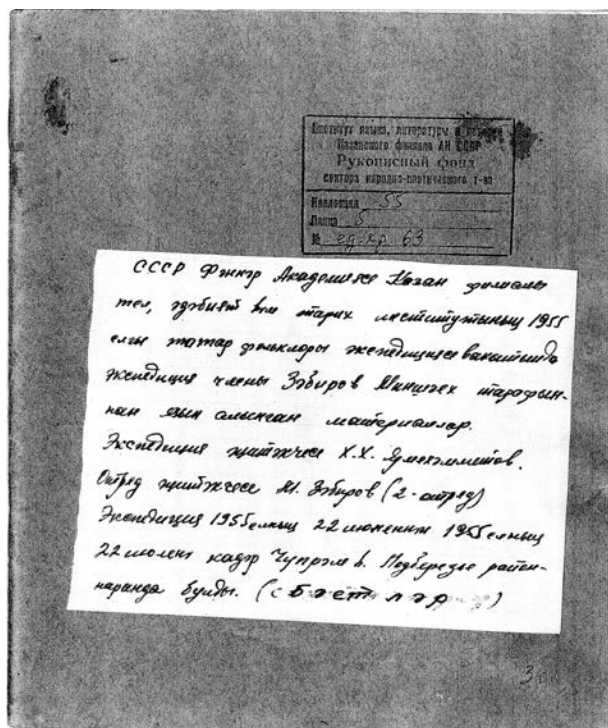 Институт языка, литературы и истории
Казанского филиала АН СССР
Рукописный фонд
сектора народно-поэтического т-ва
Коллекция 55
Папка 5
№ ед. хр. 63
СССР Фәннәр Академиясе Казан филиалы
тел, әдәбият һәм тарих институтының 1955
елгы татар фольклоры экспедициясе вакытында
экспедиция члены Зәбиров Миншәех тарафын-
нан язып алынган материаллар.
Экспедиция җитәкчесе Х.Х. Ярмөхәммәтов.
Отряд җитәкчесе М. Зәбиров (2-отряд)
Экспедиция 1955 елның 22 июненнән 1955 елның
22 июленә кадәр Чүпрәле һ. Подберезье район-
нарында булды. (с бәетләр)
3